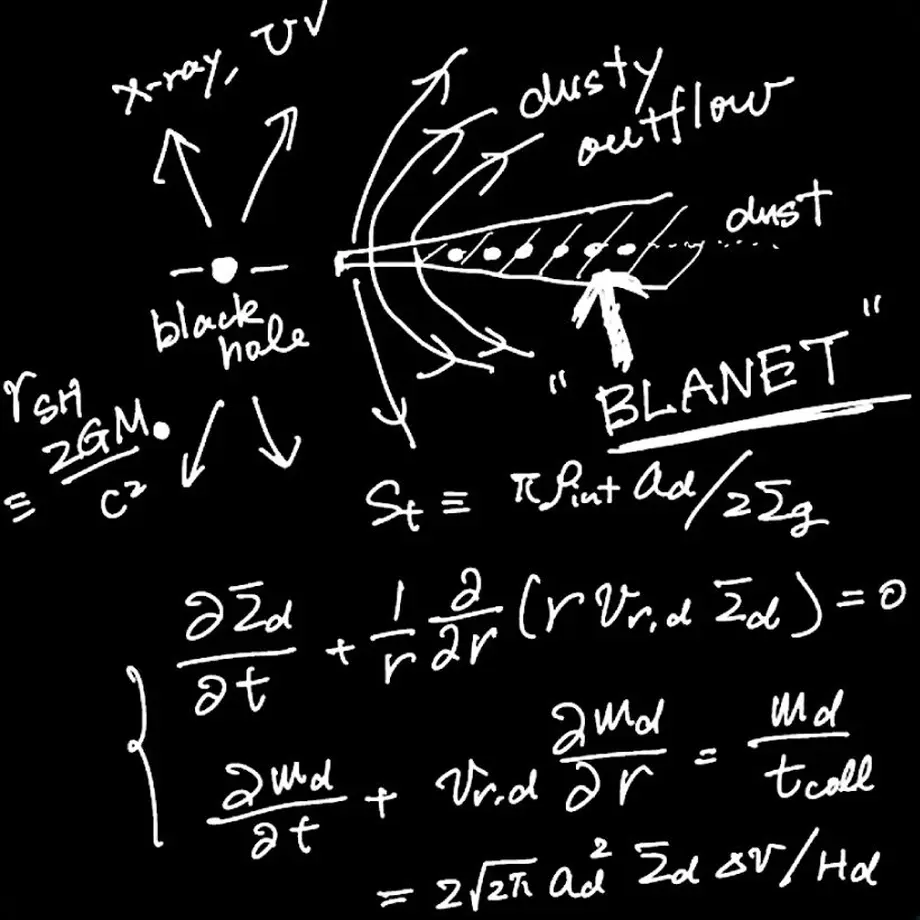 x-ray, UV
dusty
outflow
dust
black
hole
"BLANET"
r_SH
≡ 2GM• / c²
St ≡ π ρ_int a_d / 2Σ_g
∂Σ_d/∂t + 1/r ∂/∂r (r v_r,d Σ_d) = 0
∂m_d/∂t + v_r,d ∂m_d/∂r = m_d/t_coll
= 2√2π a_d² Σ_d Δv / H_d